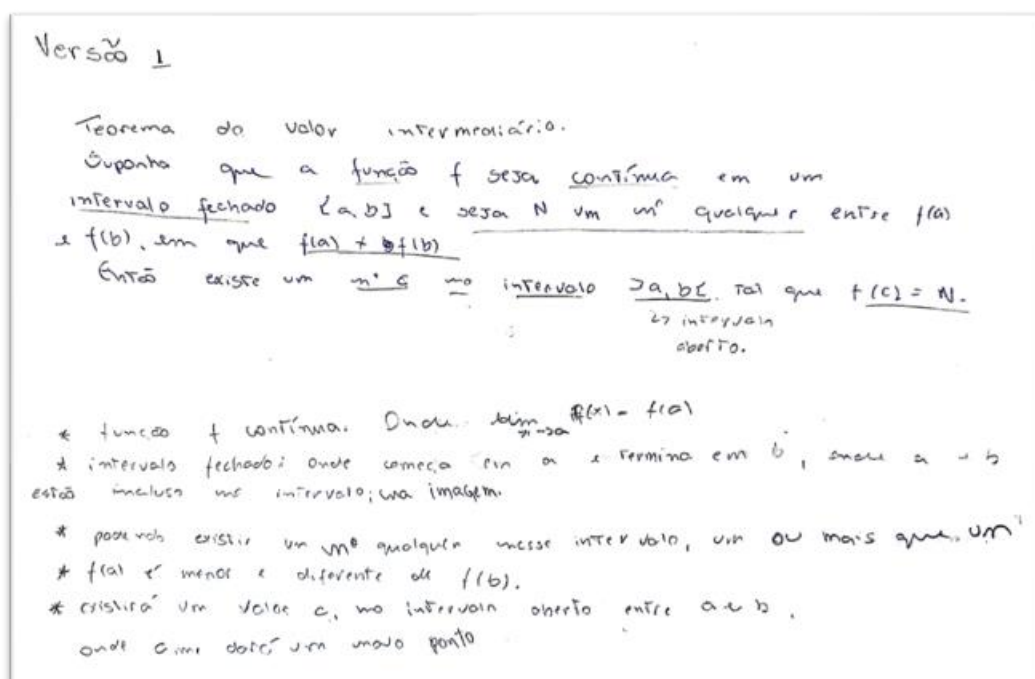 Versão 1
Teorema do valor intermediário.
Suponha que a função f seja contínua em um
intervalo fechado [a, b] e seja N um nº qualquer entre f(a)
e f(b), em que f(a) ≠ f(b)
Então existe um nº c no intervalo ]a, b[. Tal que f(c) = N.
↳ intervalo
aberto.
* função f contínua. Onde lim x→a f(x) = f(a)
* intervalo fechado: onde começa em a e termina em b, onde a e b
estão incluso no intervalo; na imagem.
* existir um nº qualquer nesse intervalo, um ou mais que um
* f(a) é menor e diferente de f(b).
* existirá um valor c, no intervalo aberto entre a e b,
onde dará um ponto